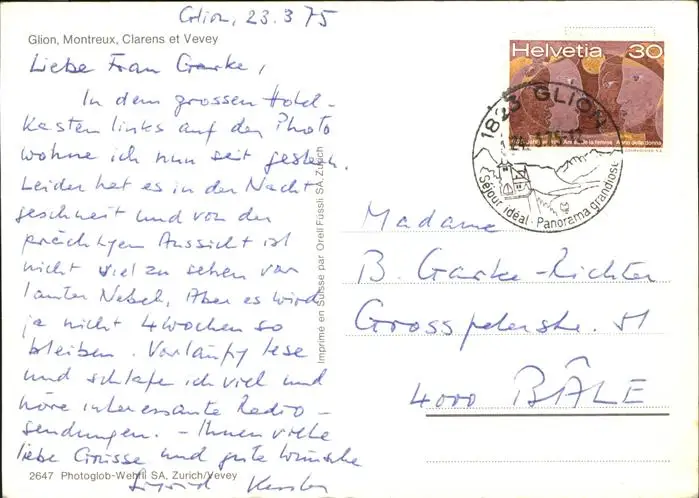 Glion, 23.3.75
Glion, Montreux, Clarens et Vevey
Liebe Frau Garke,
In dem grossen Hotel-
kasten links auf der Photo
wohne ich nun seit gestern.
Leider hat es in der Nacht
geschneit und von der
prächtigen Aussicht ist
nicht viel zu sehen vor
lauter Nebel. Aber es wird
ja nicht 4 Wochen so
bleiben. Vorläufig lese
und schlafe ich viel und
höre interessante Radio-
sendungen. - Ihnen viele
liebe Grüsse und gute Wünsche
2647 Photoglob-Wehrli SA, Zurich/Vevey
Imprimé en Suisse par Orell Füssli SA, Zurich
Helvetia 30
Anno della donna
1823 GLION
Séjour idéal · Panorama grandiose
Madame
B. Garke-Richter
Grosspeterstr. 51
4000 BÂLE